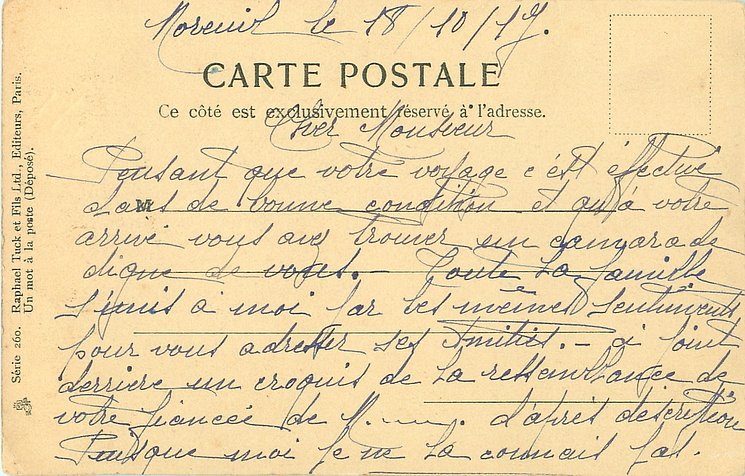 Moreuil le 18/10/17.
CARTE POSTALE
Ce côté est exclusivement réservé à l'adresse.
Cher Monsieur
Pensant que votre voyage c'est éffectué
dans de bonne condition et qu'à votre
arrivé vous avez trouver un camarade
digne de vous. — Toute la famille
s'unis à moi par les mêmes sentiments
pour vous adresser ses amitiés. — ci joint
derriere un croquis de la ressemblance de
votre fiancée de M. d'après description
Puisque moi je ne la connais pas.
M
Série 260. Raphael Tuck et Fils Ltd., Editeurs, Paris.
Un mot à la poste (Déposé).